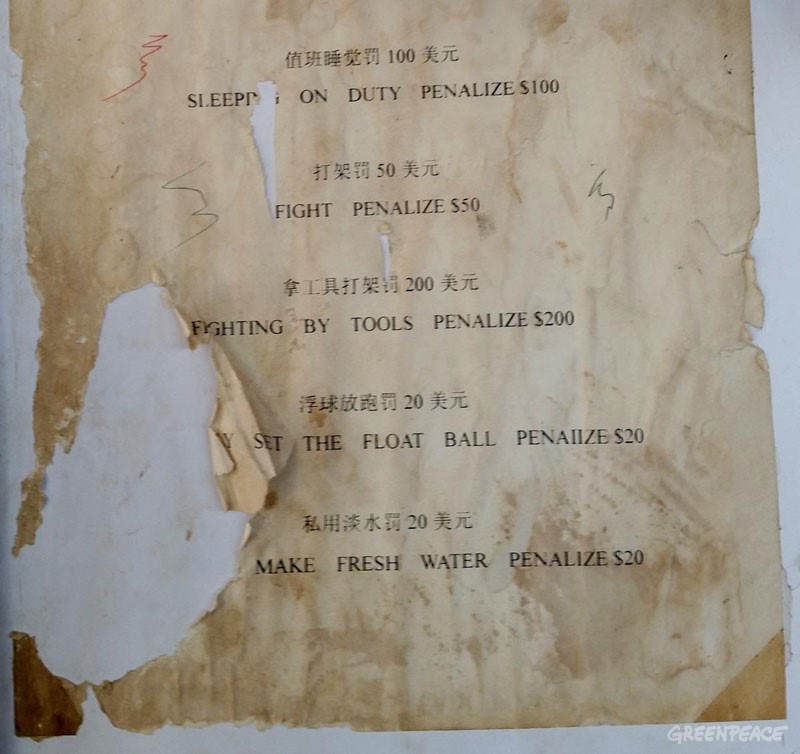 值班睡觉罚 100 美元
ON DUTY PENALIZE $100
打架罚 50 美元
FIGHT PENALIZE $50
拿工具打架罚 200 美元
FIGHTING BY TOOLS PENALIZE $200
浮球放跑罚 20 美元
SET THE FLOAT BALL PENAIIZE $20
私用淡水罚 20 美元
MAKE FRESH WATER PENALIZE $20
GREENPEACE